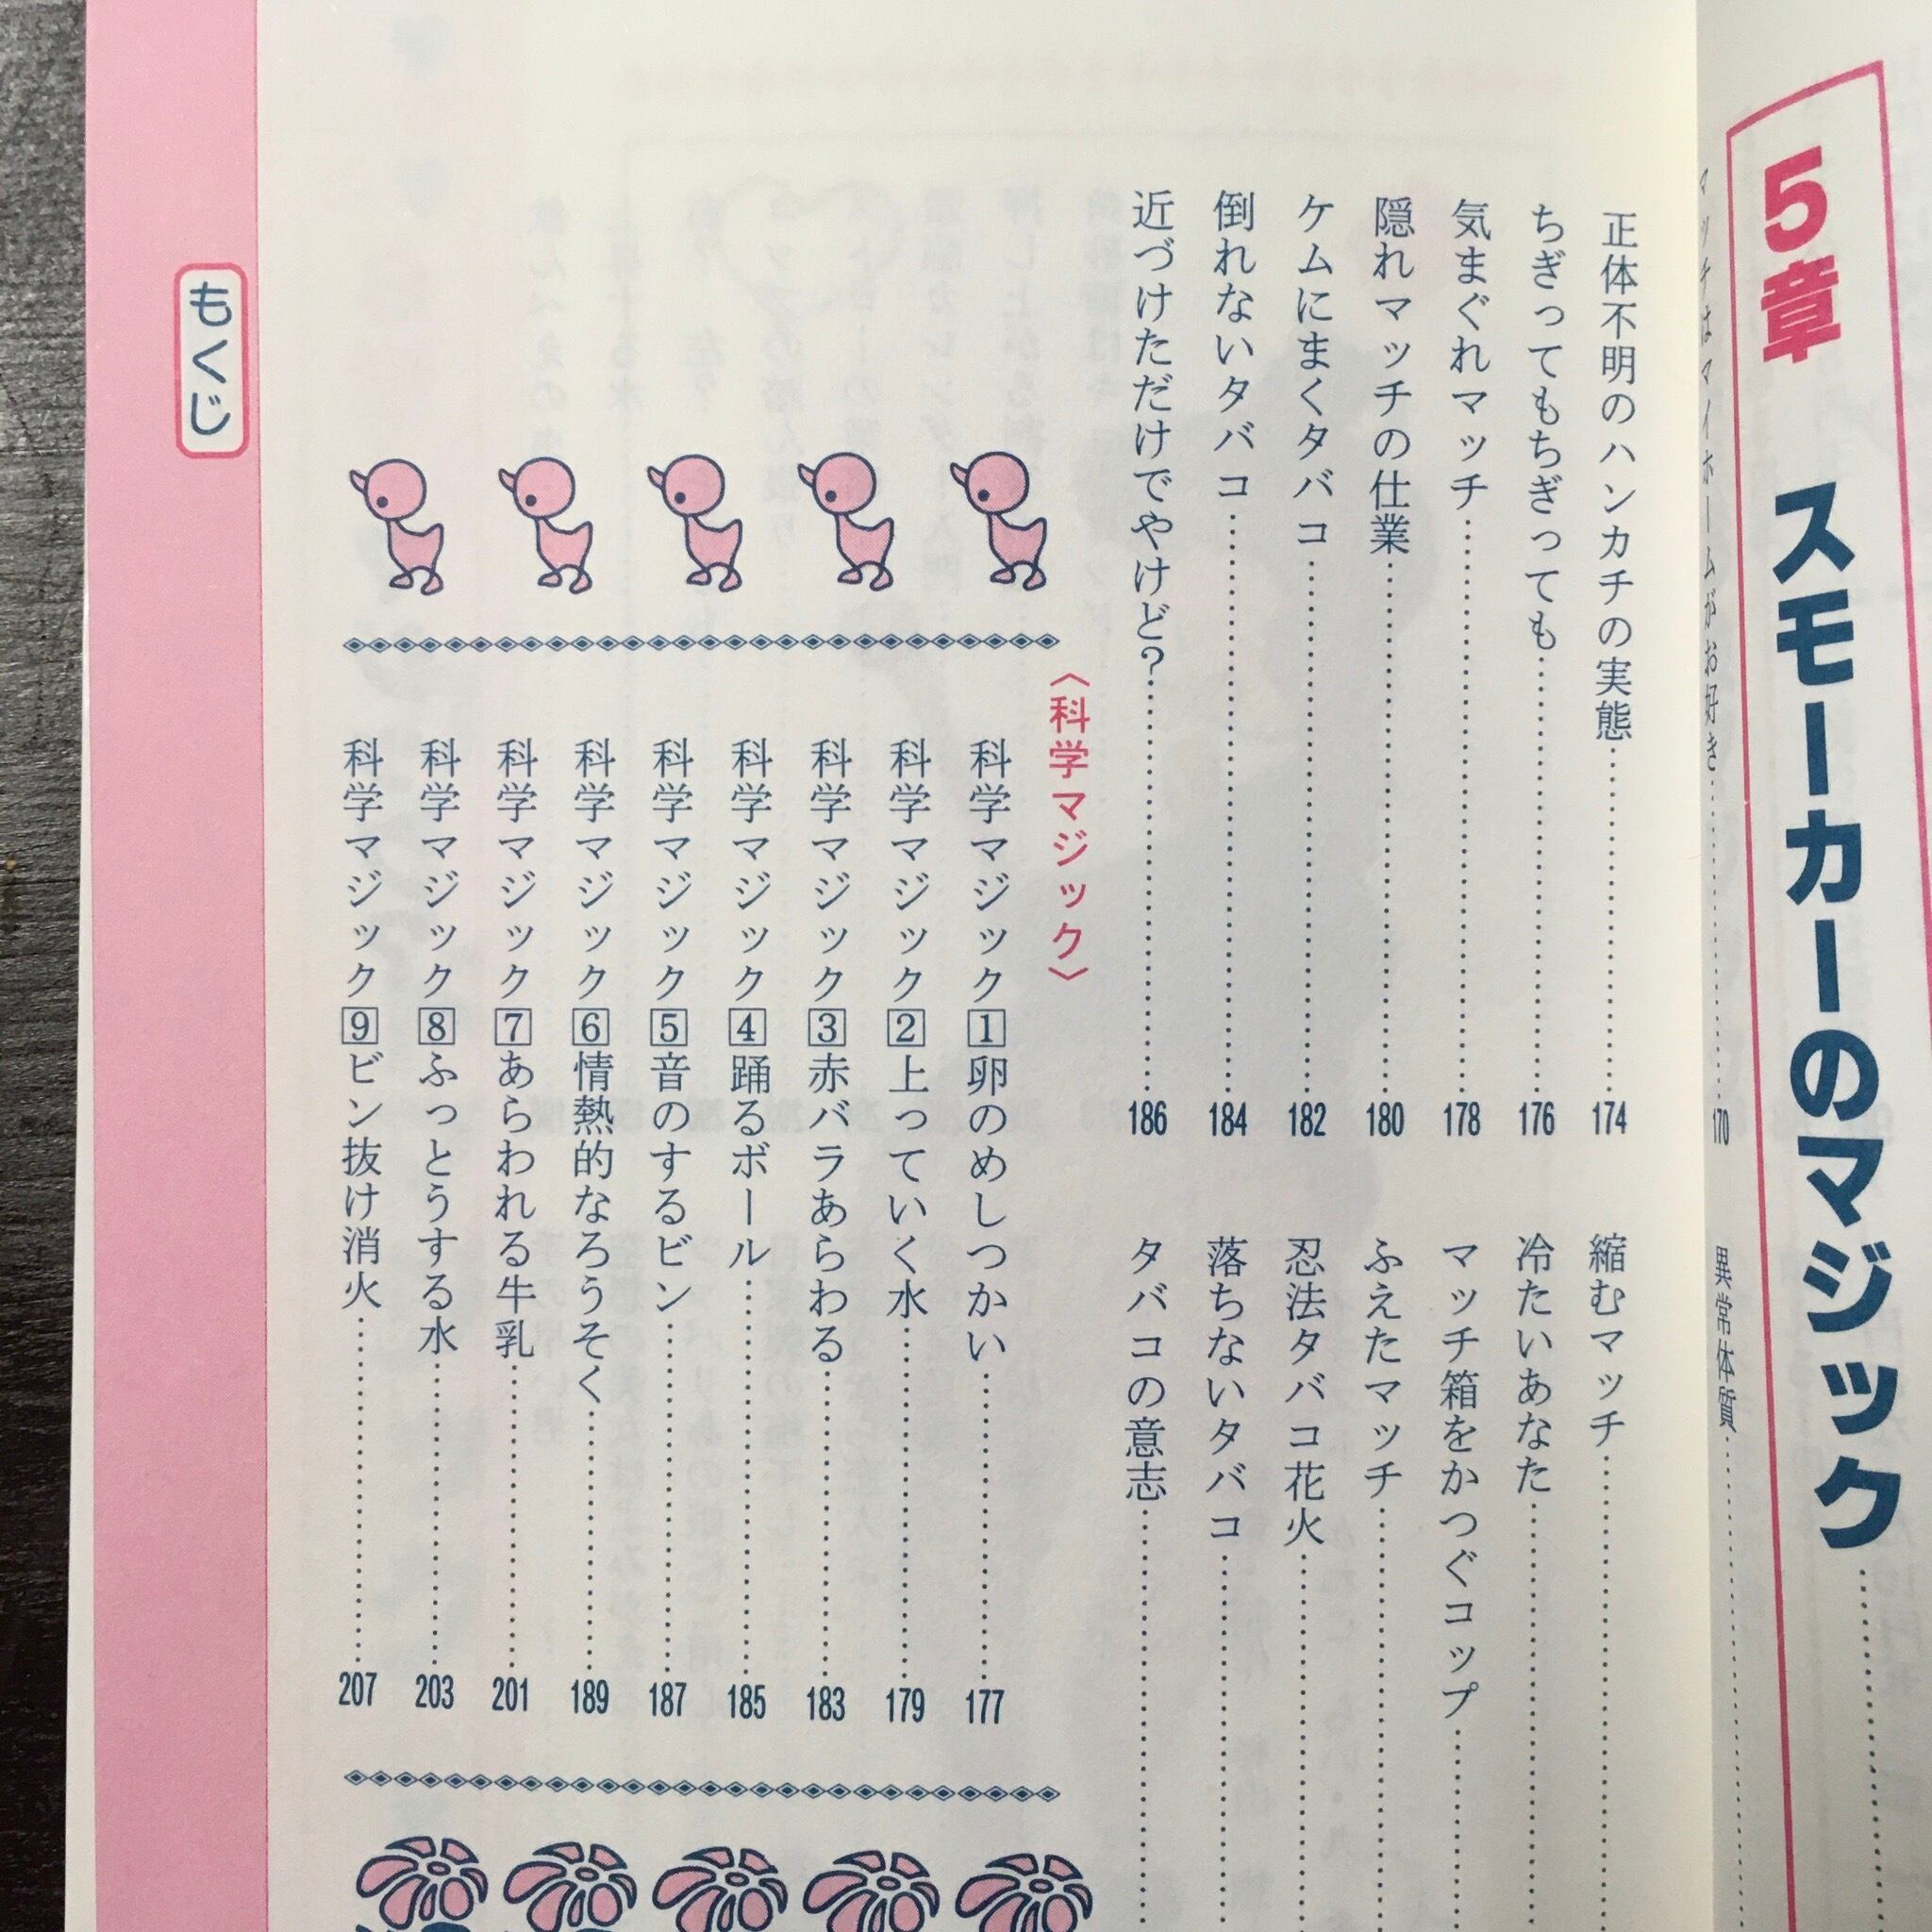 5章 スモーカーのマジック
マッチはマイホームがお好き 170
異常体質
正体不明のハンカチの実態 174
ちぎってもちぎっても 176
気まぐれマッチ 178
隠れマッチの仕業 180
ケムにまくタバコ 182
倒れないタバコ 184
近づけただけでやけど? 186
縮むマッチ
冷たいあなた
マッチ箱をかつぐコップ
ふえたマッチ
忍法タバコ花火
落ちないタバコ
タバコの意志
〈科学マジック〉
科学マジック1卵のめしつかい 177
科学マジック2上っていく水 179
科学マジック3赤バラあらわる 183
科学マジック4踊るボール 185
科学マジック5音のするビン 187
科学マジック6情熱的なろうそく 189
科学マジック7あらわれる牛乳 201
科学マジック8ふっとうする水 203
科学マジック9ビン抜け消火 207
もくじ